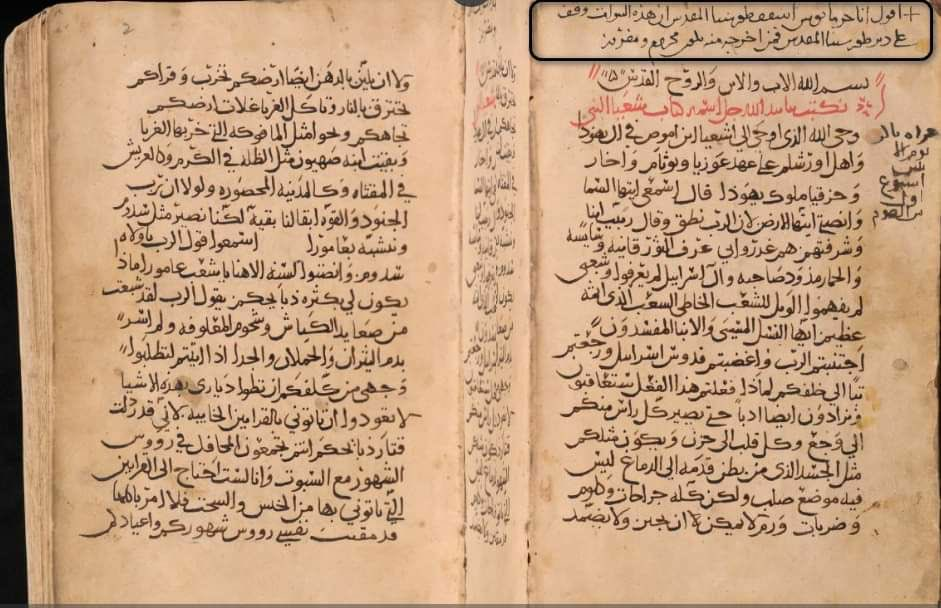 + اقول انا حرمانوس اسقف طورسينا المقدس ان هذه النبوات وقف
على دير طورسينا المقدس فمن اخرجه منه يكون محروم ومفروز
بسم الله الاب والابن والروح القدس
نكتب بتاييد الله جل اسمه كتاب شعيا النبي
وحي الله الذي اوحى الى اشعيا ابن اموص في ال يهودا
واهل اورشلم على عهد عوزيا ويوثام واحاز
وحزقيا ملوك يهوذا قال اسمعي ايتها السما
وانصتي ايتها الارض لان الرب نطق وقال ربيت ابنا
وشرفتهم هم غدروا بي عرف الثور قانيه
والحمار مذود صاحبه وال اسراييل لم يعرفوا وشعبي
لم يفهموا الويل للشعب الخاطي الشعب الذي اثمه
عظيم ايها النسل المسي والابنا المفسدون
اجتنبتم الرب واغضبتم قدوس اسراييل ورجعتم
الى خلفكم لماذا فعلتم هذا الفعل ستعاقبون
وتزادون ايضا ادبا حتى يصير كل راس منكم
الى وجع وكل قلب الى حزن ويكون مثلكم
مثل الجسد الذي من بطن قدمه الى الدماغ ليس
فيه موضع صلب ولكن كله جراحات وكلوم
وضربات وورم لا يمكن ان تجبر ولا تضمد
يوم
اسبوع
اول
من الصوم
2
ولا ان يلين بالدهن ايضا ارضكم تخرب وقراكم
تحترق بالنار وتاكل الغربا غلات ارضكم
تجاهكم ونحوا مثل المافوكه التي خربها الغربا
وبقيت ابنه صهيون مثل الظله في الكرم وكالعريش
في المقتاه وكالمدينه المحصوره ولولا ان رب
الجنود والقوه ابقا لنا بقية لكنا نصير مثل سدوم
ونتشبه بعامورا اسمعوا قول الرب ياولاه
سدوم وانصتوا لسنة الاهنا ياشعب عامورا ماذا
يكون لي كثره ذبايحكم يقول الرب لقد شبعت
من صعايد الكباش وشحوم المعلوفه ولم اسر
بدم الثيران والحملان والجدا اذا اتيتم لتطلبوا
وجهي من كلفكم ان تطوا دياري بهذه الاشيا
لا تعودوا ان تاتوني بالقرابين الخايبه لاني قد رذلت
قتار ذبايحكم انتم تجتمعون المحافل في رووس
الشهور مع السبوت وانا لست احتاج الى القرابين
التي تاتوني بها من الخلس والسحت فلا امر بها
قد مقتت نفسي رووس شهوركم واعيادكم